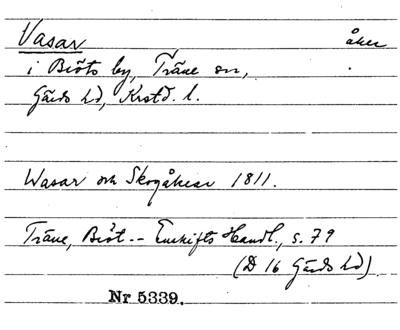 Vasar åker
i Biöts by, Träne sn,
Gärds hd, Krstd. l.
Wasar och Skogåkrar 1811.
Träne, Biöt -- Enskifts Handl., s. 79
(D 16 Gärds hd)
Nr 5339.